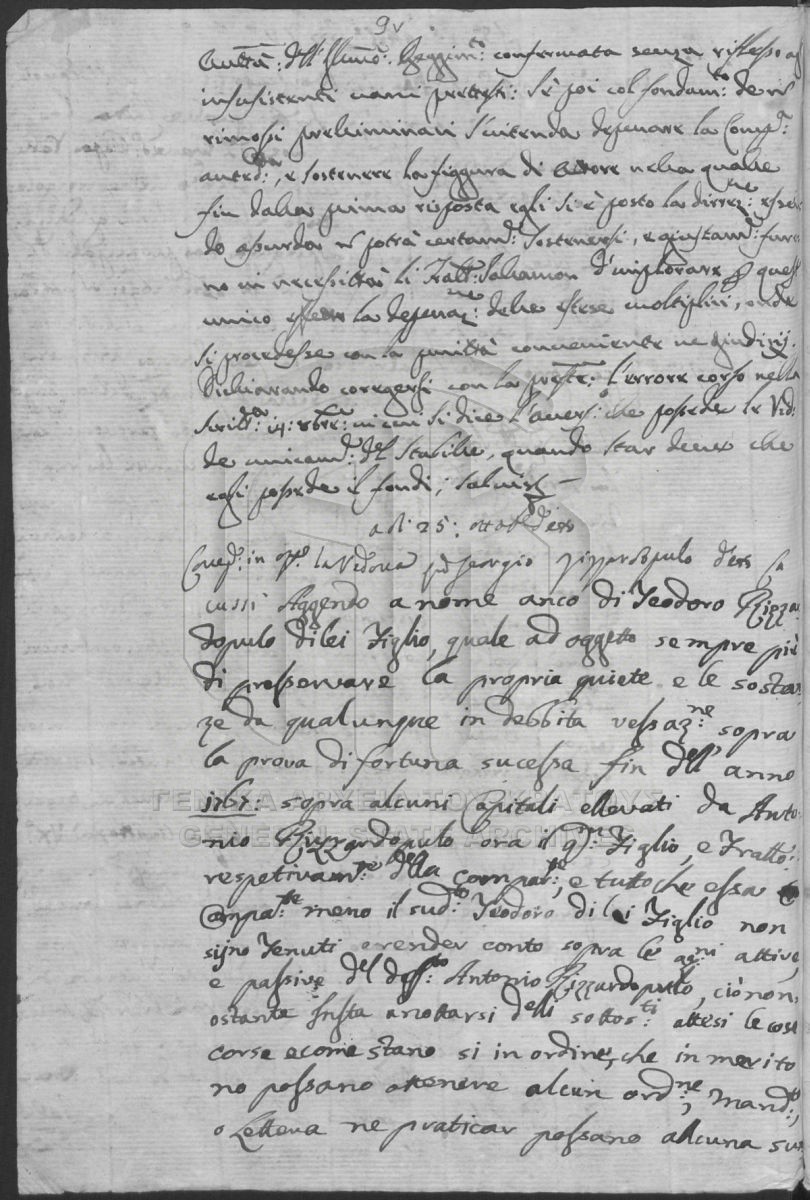 9v
dell' Illmo: Reggimto: confermata senza riflesso a
insusistenti vani pretesti: Se poi col fondamto: de
rimossi preliminari s'intenda depennare la Comp
anted, e sostenere la figgura di Attore nella quale
fin dalla prima risposta egli si è posto la direz:ne essen
do assurda potrà certam: sostenersi, e giustam: furo
no in necessittà li Fratt: Salamon d'implorare quest
unico la depenaz:ne delle estese moltiplici, onde
si procedesse con la purittà conveniente ne giudizij.
Dichiarando coregersi con la preste: l'errore corso nella
Scritt:a 14: xbre: in cui si dice l'avers:o che possede le
de unicam: del Stabille, quando star deve che
egli possede il fondi; salvis
a di 25: ottobre
in la Vedova Georgio Pizzardopulo
Aggendo a nome anco di Teodoro Pizza
dopulo di lei Figlio, quale ad oggetto sempre più
di presservare la propria quiete e le sostan
ze da qualunque indebbita vessaz:ne sopra
la prova di fortuna sucessa fin dell' anno
1767: sopra alcuni Capitali ellevati da Anto
nio Pizzardopulo ora il qm: Figlio, e Fratto:
respetivam:te della Compar:te, e tutto che essa
Compa:te meno il sud:to Teodoro di lei Figlio non
sijno Tenuti e render conto sopra le ni attive,
e passive del to Antonio Pizzardopulo, ciò non
ostante annottarsi delli sottos:ti attesi le cose
corse e come stano si in ordine, che in merito
no possano ottenere alcun ord:ne, mand:to,
o Lettera ne praticar possano alcuna su
ΓΕΝΙΚΑ ΑΡΧΕΙΑ ΤΟΥ ΚΡΑΤΟΥΣ
GENERAL STATE ARCHIVES